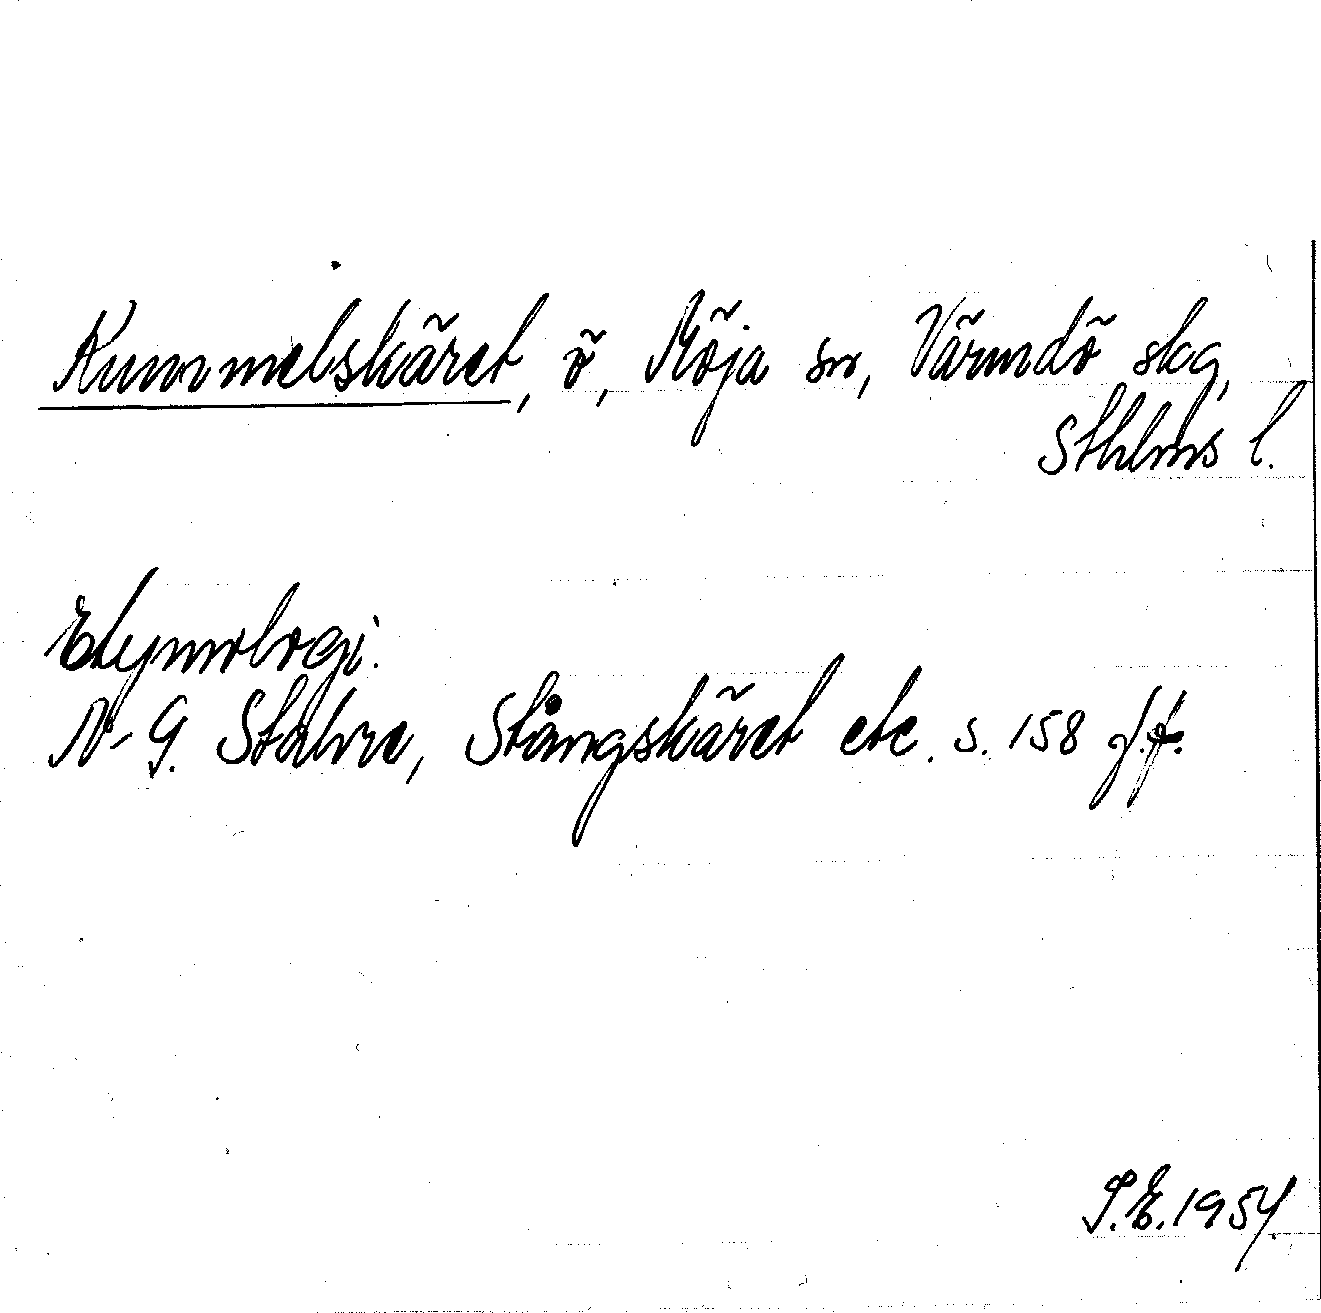 Kummelskäret, ö, Möja sn, Värmdö skg,
Sthlms l.
Etymologi.
N-G. Stahre, Stångskäret etc. s. 158 o.f.
S.E. 1954.